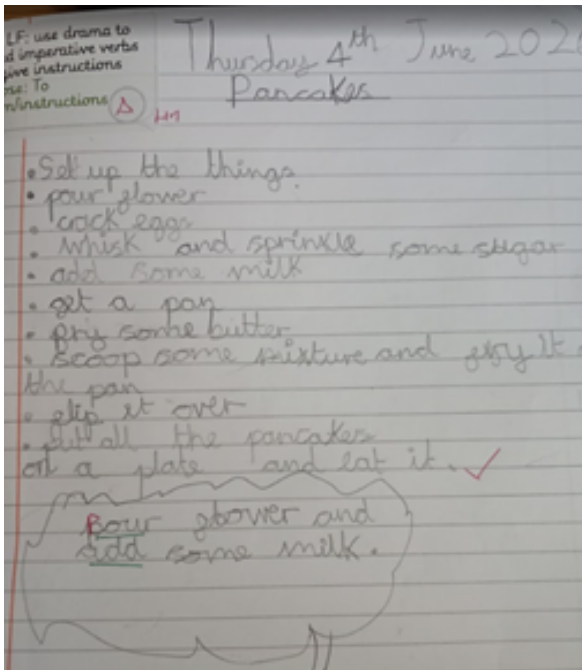 LF: use drama to
d imperative verbs
give instructions
ose: To
n/instructions
Thursday 4th June 202
Pancakes
• Set up the things.
• pour glower
• crack eggs
• whisk and sprinkle some sugar
• add some milk
• get a pan
• fry some butter
• scoop some mixture and fry it
the pan
• flip it over
• put all the pancakes
on a plate and eat it.
Pour glower and
add some milk.